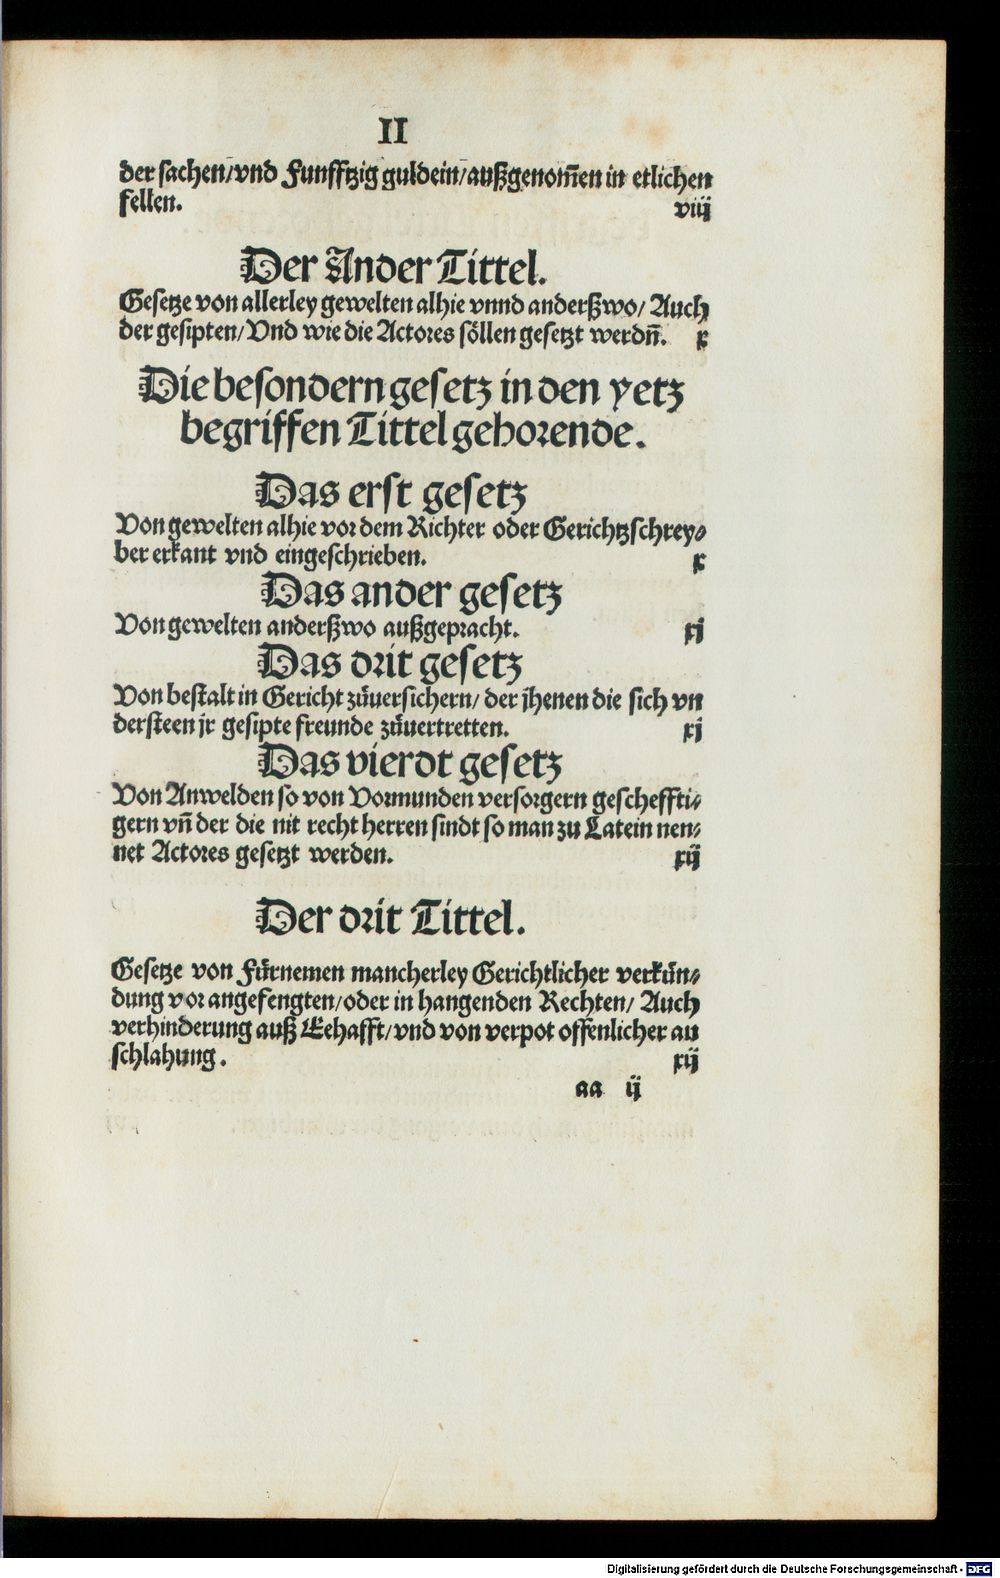 II
der sachen/vnd Funfftzig guldein/außgenom̄en in etlichen
fellen. viij
Der Ander Tittel.
Gesetze von allerley gewelten alhie vnnd anderßwo/ Auch
der gesipten/ Vnd wie die Actores söllen gesetzt werdn̄. x
Die besondern gesetz in den yetz
begriffen Tittel gehorende.
Das erst gesetz
Von gewelten alhie vor dem Richter oder Gerichtzschrey⸗
ber erkant vnd eingeschrieben. x
Das ander gesetz
Von gewelten anderßwo außgepracht. xj
Das drit gesetz
Von bestalt in Gericht zůuersichern/ der jhenen die sich vn
dersteen jr gesipte freunde zůuertretten. xj
Das vierdt gesetz
Von Anwelden so von Vormunden versorgern gescheffti⸗
gern vn̄ der die nit recht herren sindt so man zu Latein nen⸗
net Actores gesetzt werden. xij
Der drit Tittel.
Gesetze von Fürnemen mancherley Gerichtlicher verkün⸗
dung vor angefengten/oder in hangenden Rechten/ Auch
verhinderung auß Eehafft/vnd von verpot offenlicher au
schlahung. xij
aa ij
Digitalisierung gefördert durch die Deutsche Forschungsgemeinschaft - DFG